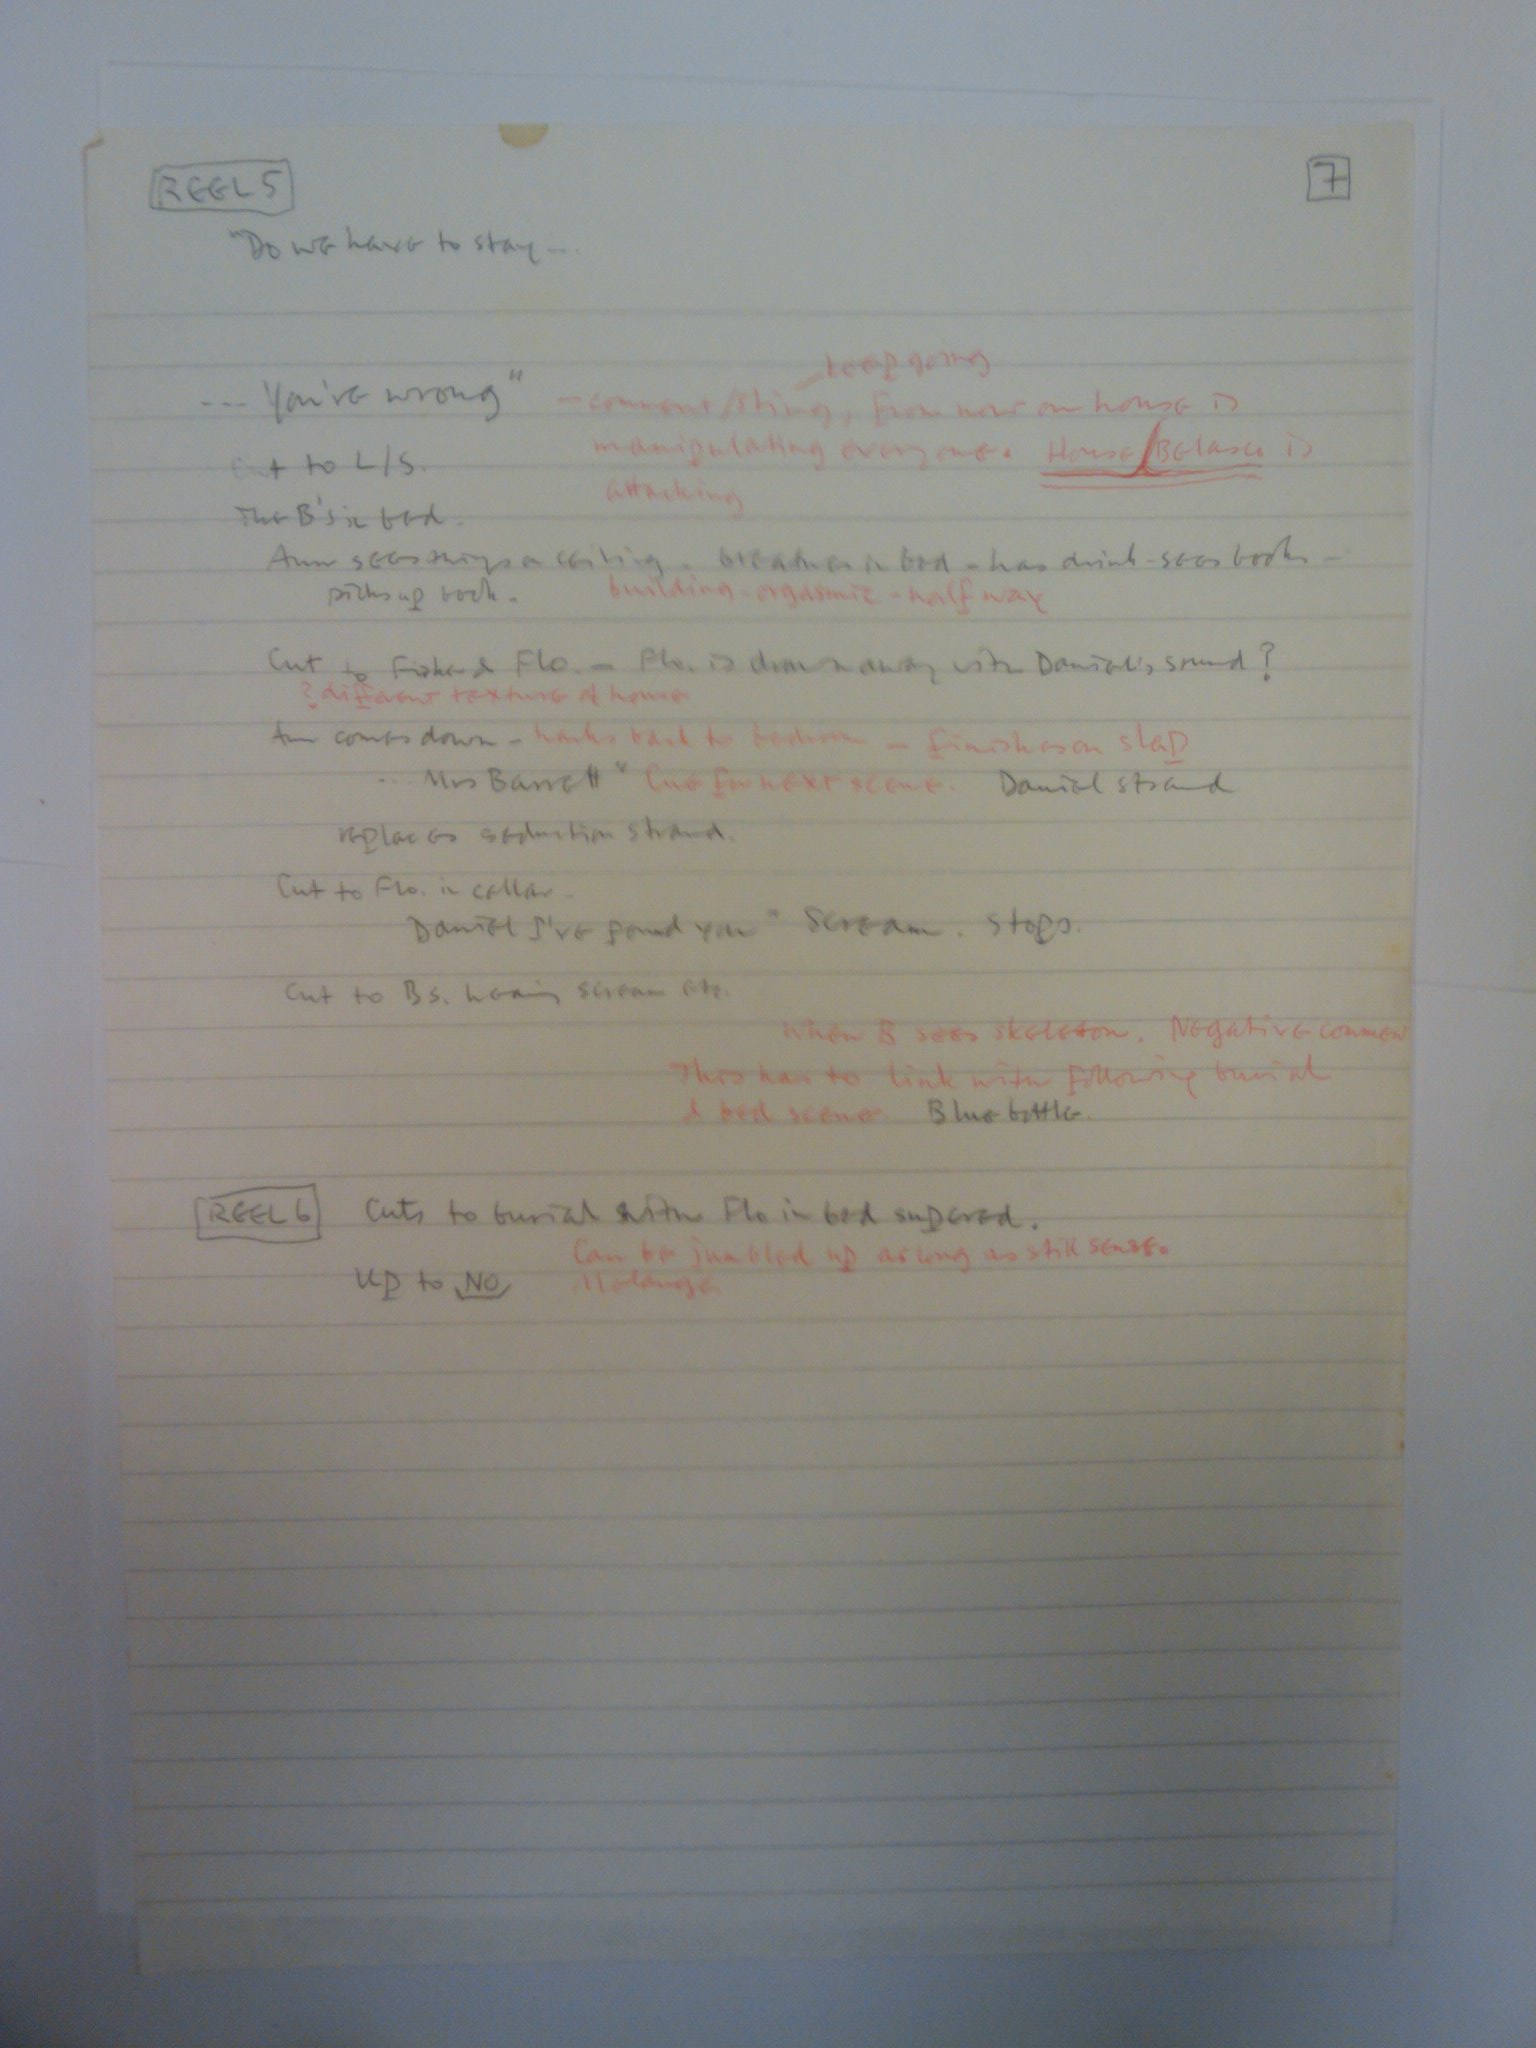 REEL 5
7
"Do we have to stay ...
keep going
--- You're wrong" - comment/sting, from now on house is
manipulating everyone. House/Belasco is
Cut to L/S.
attacking
The B's in bed.
Ann sees things on ceiling. breathes in bed - has drink - sees books -
picks up book. building - orgasmic - half way
Cut to Fisher & Flo. - Flo. is drawn away with Daniel's sound?
? different texture of house
Ann comes down - harks back to bedroom - finishes on slap
... Mrs Barrett" Cue for next scene. Daniel strand
replaces seduction strand.
Cut to Flo. in cellar.
Daniel I've found you" Scream. Stops.
Cut to Bs. hearing scream etc.
When B sees skeleton. Negative comment
This has to link with following burial
& bed scene. Bluebottle.
REEL 6 Cuts to burial with Flo in bed supered.
Can be jumbled up as long as still sense.
Up to NO Melange